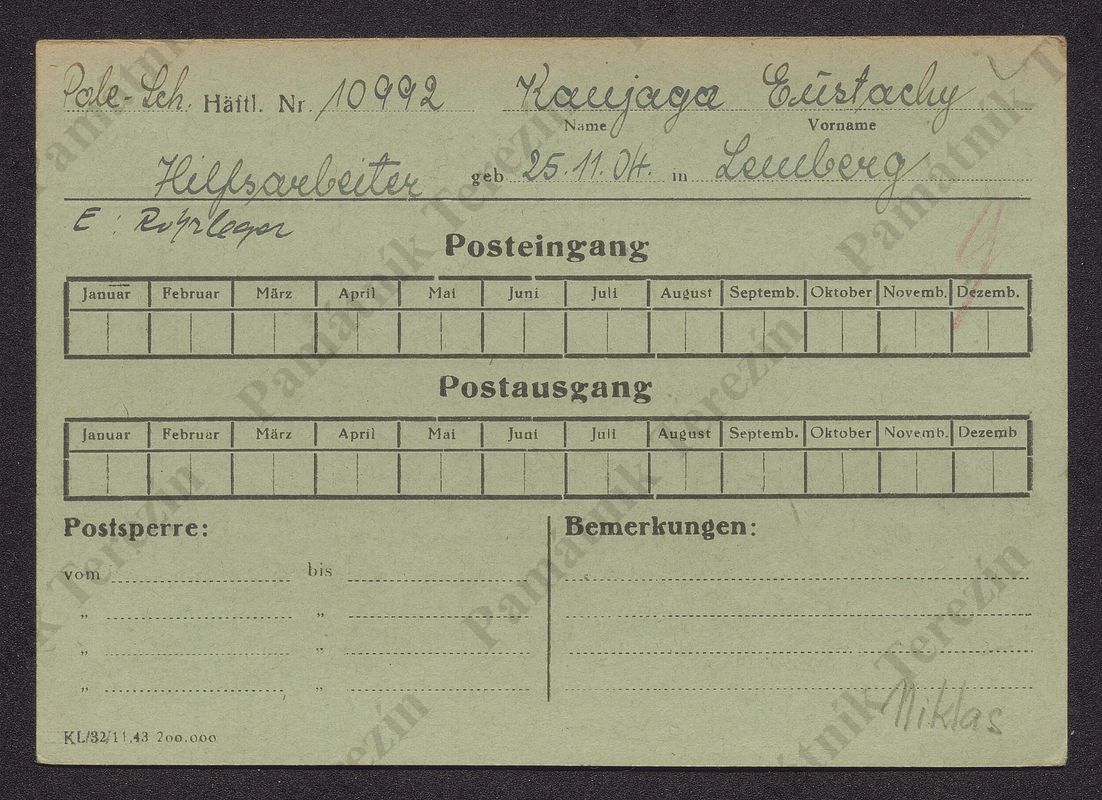 Pole-Sch. Häftl. Nr. 10992 Kanjaga Eustachy
Name Vorname
Hilfsarbeiter geb. 25.11.04. in Lemberg
E: Rohrleger
Posteingang
Januar Februar März April Mai Juni Juli August Septemb. Oktober Novemb. Dezemb.
Postausgang
Januar Februar März April Mai Juni Juli August Septemb. Oktober Novemb. Dezemb
Postsperre: Bemerkungen:
vom bis
„ „
„ „
„ „
Niklas
KL/32/11.43 200.000
Památník Terezín